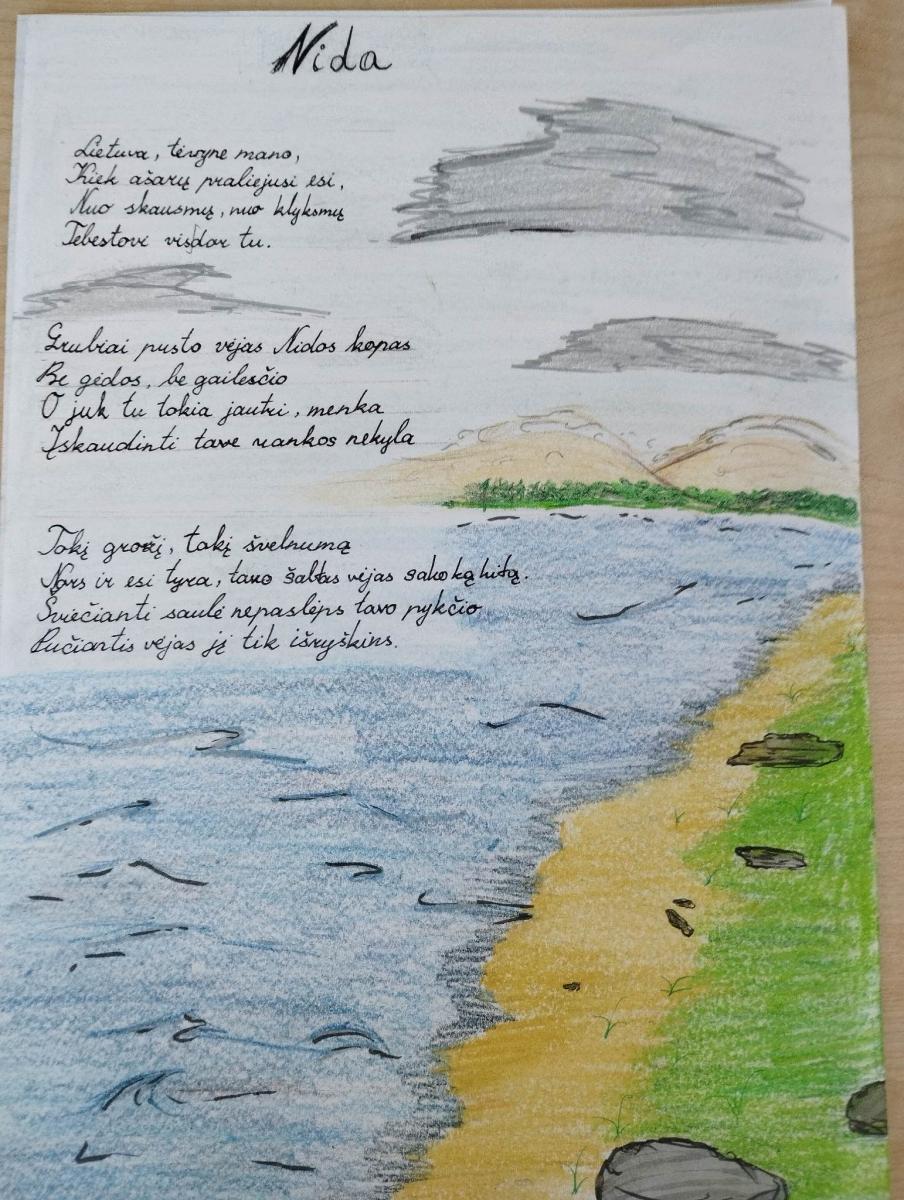 Nida
Lietuva, tėvyne mano,
Kiek ašarų praliejusi esi,
Nuo skausmų, nuo klyksmų
Tebestovi visdar tu.
Grubiai pusto vėjas Nidos kopas
Be gėdos, be gailesčio
O juk tu tokia jautri, menka
Įskaudinti tave rankos nekyla
Tokį grožį, tokį švelnumą
Nors ir esi tyra, tavo šaltas vėjas sako ką kitą.
Šviečianti saulė nepaslėps tavo pykčio
Pučiantis vėjas jį tik išryškins.